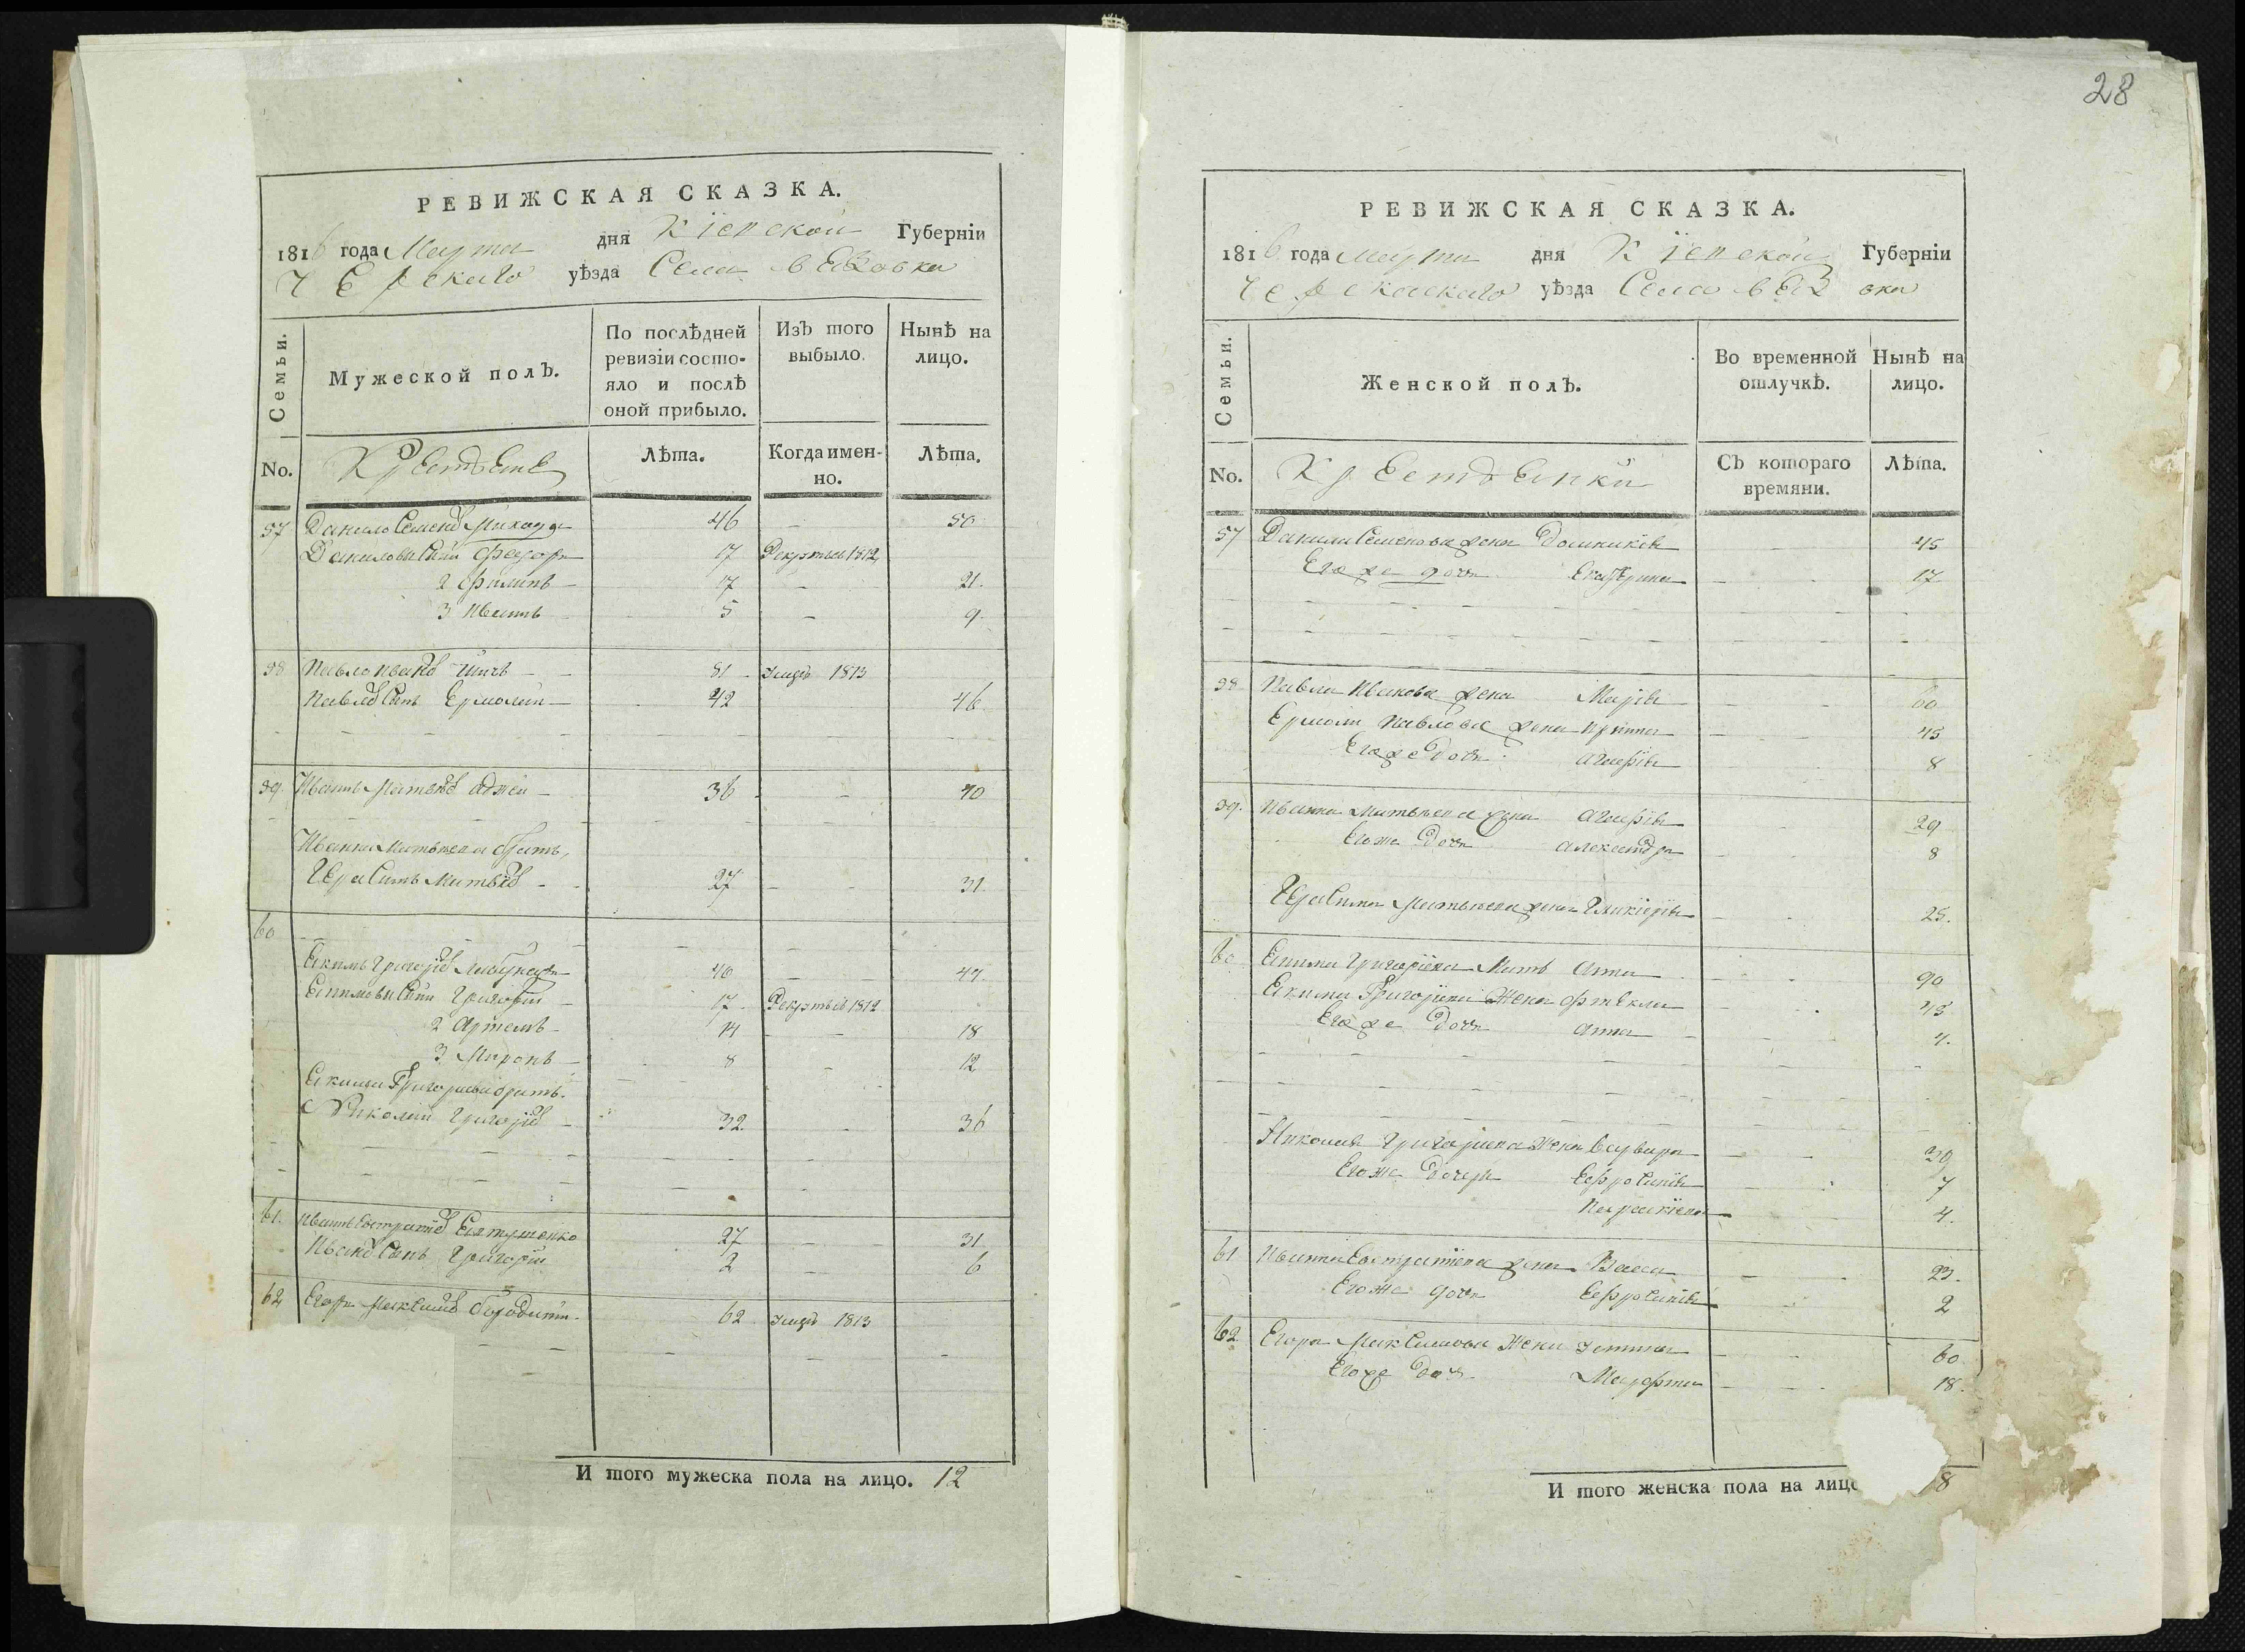 28
РЕВИЖСКАЯ СКАЗКА.
1816 года Марта дня Кіевской Губерніи
Черскаго уѣзда Села вѣзовка
Семьи.
Мужеской полъ.
По послѣдней ревизіи состояло и послѣ оной прибыло.
Изъ того выбыло.
Нынѣ на лицо.
No.
Крестьяне
Лѣта.
Когда именно.
Лѣта.
57 Данило Семеновъ 46 – 50
Даниловы Сыны Федоръ 17 Рекрутъ въ 1812
2 Филипъ 17 – 21.
3 Иванъ 5 – 9.
58 Павло Ивановъ 81 умре 1813
Павловъ Сынъ Ермолай 42 46
59. Иванъ Матвѣевъ 36 – 40
Ивана Матвѣева братъ,
Герасимъ Матвѣевъ 27 – 31.
60
Екимъ Григорьевъ 40 – 44.
Екимовы Сыны Григорій 17 Рекрутъ въ 1812
2 Артемъ 14 – 18
3 Миронъ 8 – 12
Екима Григорьева братъ.
Николай Григорьевъ 32. – 36
61. Иванъ Евстратіевъ 27 – 31
Ивановъ Сынъ Григорій 2 – 6
62 Егоръ Максимовъ 62 умре 1813
И того мужеска пола на лицо. 12
РЕВИЖСКАЯ СКАЗКА.
1816 года Марта дня Кіевской Губерніи
Черскаскаго уѣзда Села вѣзовка
Семьи.
Женской полъ.
Во временной отлучкѣ.
Нынѣ на лицо.
No.
Крестьянки
Съ котораго времяни.
Лѣта.
57 Данила Семенова жена Домникія – 45
Его же дочь Екатерина – 17
58 Павла Иванова жена Марія – 60
Ермолая Павлова жена Ирина – 45
Его же дочь Агафія 8
59. Ивана Матвѣева жена Агафія – 29
Его же дочь Александра – 8
Герасима Матвѣева жена Гликерія – 25.
60 Екима Григоріева Мать Анна – 90
Екима Григоріева Жена Фтекла – 43
Его же дочь Анна – 4.
Николая Григоріева Жена Варвара – 29
Его же дочери Ефросинія – 7
Параскіева – 4.
61 Ивана Евстратіева жена Васса – 23.
Его же дочь Ефросинія – 2
62 Егора Максимова Жена Устина – 60
Его же дочь Марфа – 18.
И того женска пола на лиц 8